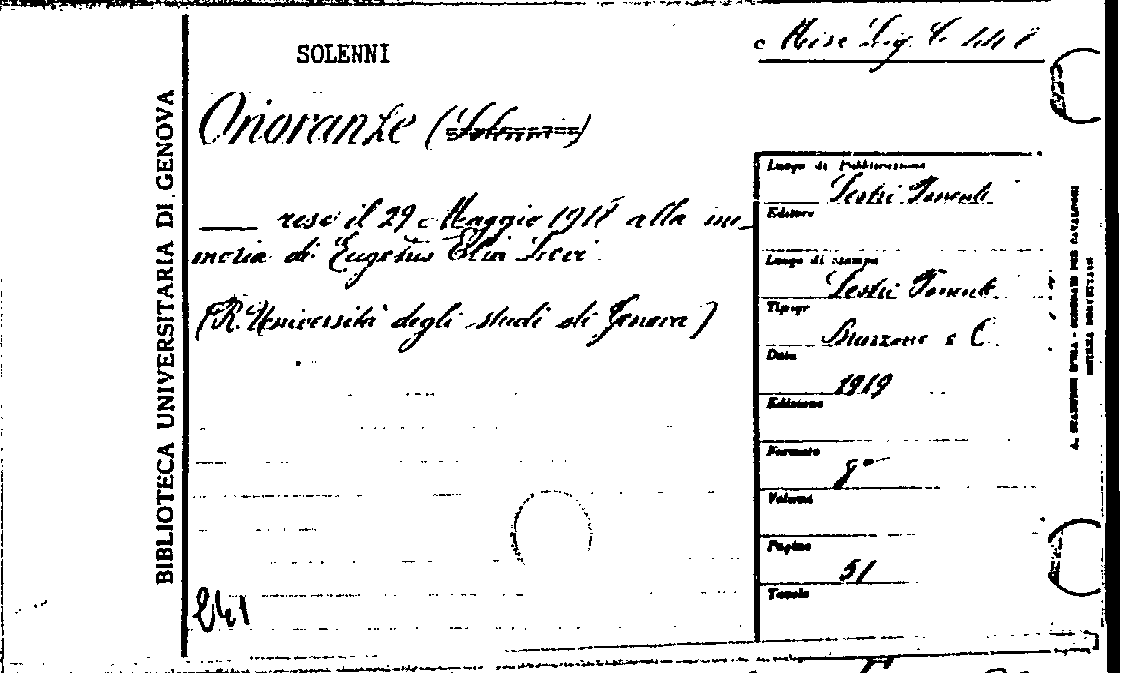 SOLENNI
Misc Lig. C
Onoranze (Solenni)
BIBLIOTECA UNIVERSITARIA DI GENOVA
___ rese il 29 Maggio 1918 alla me_
moria di Eugenio Elia Levi.
(R. Università degli studi di Genova)
241
Luogo di Pubblicazione
Sestri Ponente
Editore
Luogo di stampa
Sestri Ponente
Tipogr
Bruzzone e C.
Data
1919
Edizione
Formato
8°
Volume
Pagine
51
Tavole